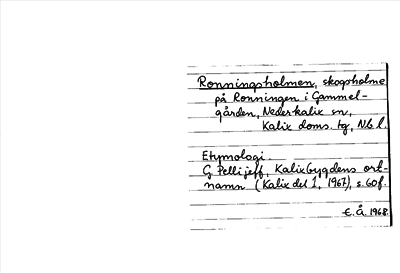 Ronningsholmen, skogsholme
på Ronningen i Gammel-
gården, Nederkalix sn,
Kalix doms. tg, Nb l.
Etymologi.
G Pellijeff, Kalixbygdens ort-
namn (Kalix del 1, 1967), s. 60f.
E. Å. 1968.